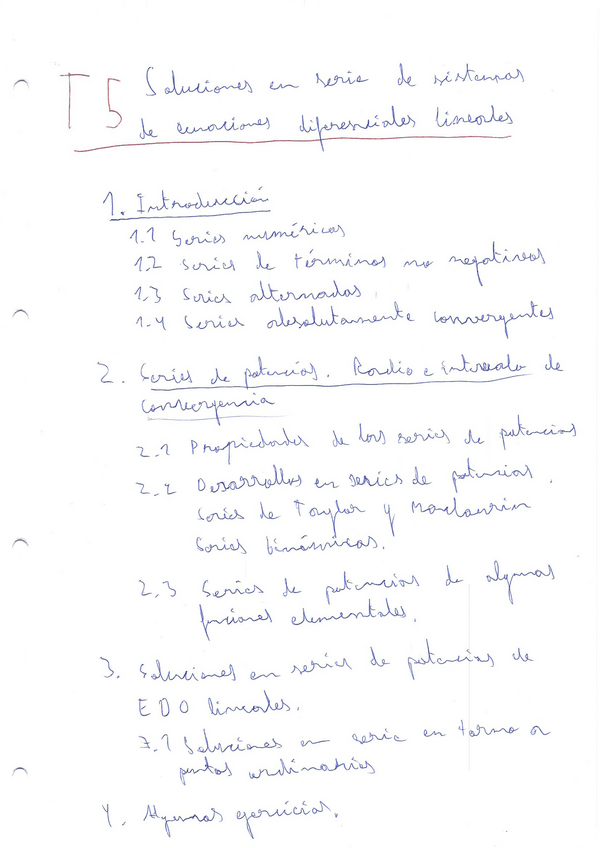 T5 Soluciones en serie de sistemas
de ecuaciones diferenciales lineales
1. Introducción
1.1 Series numéricas
1.2 Series de términos no negativos
1.3 Series alternadas
1.4 Series absolutamente convergentes
2. Series de potencias. Radio e intervalo de
convergencia
2.1 Propiedades de las series de potencias
2.2 Desarrollos en series de potencias.
Series de Taylor y Maclaurin
Series binómicas.
2.3 Series de potencias de algunas
funciones elementales.
3. Soluciones en series de potencias de
EDO lineales.
3.1 Soluciones en serie en torno a
puntos ordinarios
4. Algunos ejercicios.